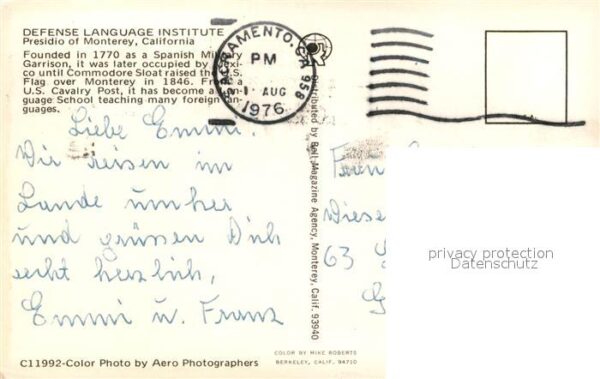 DEFENSE LANGUAGE INSTITUTE
Presidio of Monterey, California
Founded in 1770 as a Spanish Military
Garrison, it was later occupied by Mexi-
co until Commodore Sloat raised the U.S.
Flag over Monterey in 1846. From a
U.S. Cavalry Post, it has become a Lan-
guage School teaching many foreign lan-
guages.
SACRAMENTO, CA 958
PM
1 AUG
1976
Liebe Emmi.
Wir reisen im
Lande umher
und grüssen Dich
recht herzlich,
Emmi u. Franz
Distributed by Bell Magazine Agency, Monterey, Calif. 93940
63
privacy protection
Datenschutz
C11992-Color Photo by Aero Photographers
COLOR BY MIKE ROBERTS
BERKELEY, CALIF. 94710